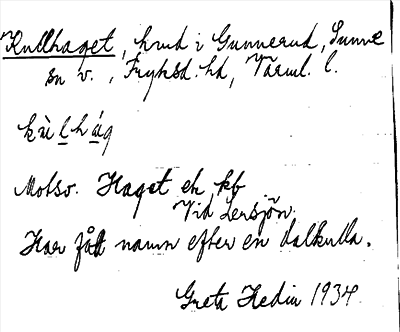 Kullhaget, hmd i Gunnerud, Sunne
sn v., Fryksd. hd, Värml. l.
kùl hág
Motsv. Haget ek kb
Vid Lersjön.
Har fått namn efter en dalkulla.
Greta Hedin 1934.